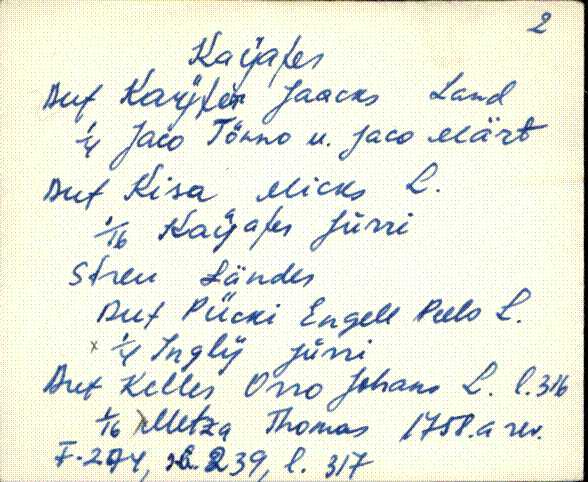 2
Kaÿafer
Auf Kaÿfer Jaacks Land
1/4 Jaco Tönno u. Jaco Märt
Auf Kisa Micks L.
1/16 Kaÿafer Jürri
Streu Ländes
Auf Pücki Engell Peelo L.
x 1/4 Inglÿ Jürri
Auf Kelles Orro Johans L. l. 316
1/16 Metza Thomas 1758. a rev.
F. 274, s. 239, l. 317